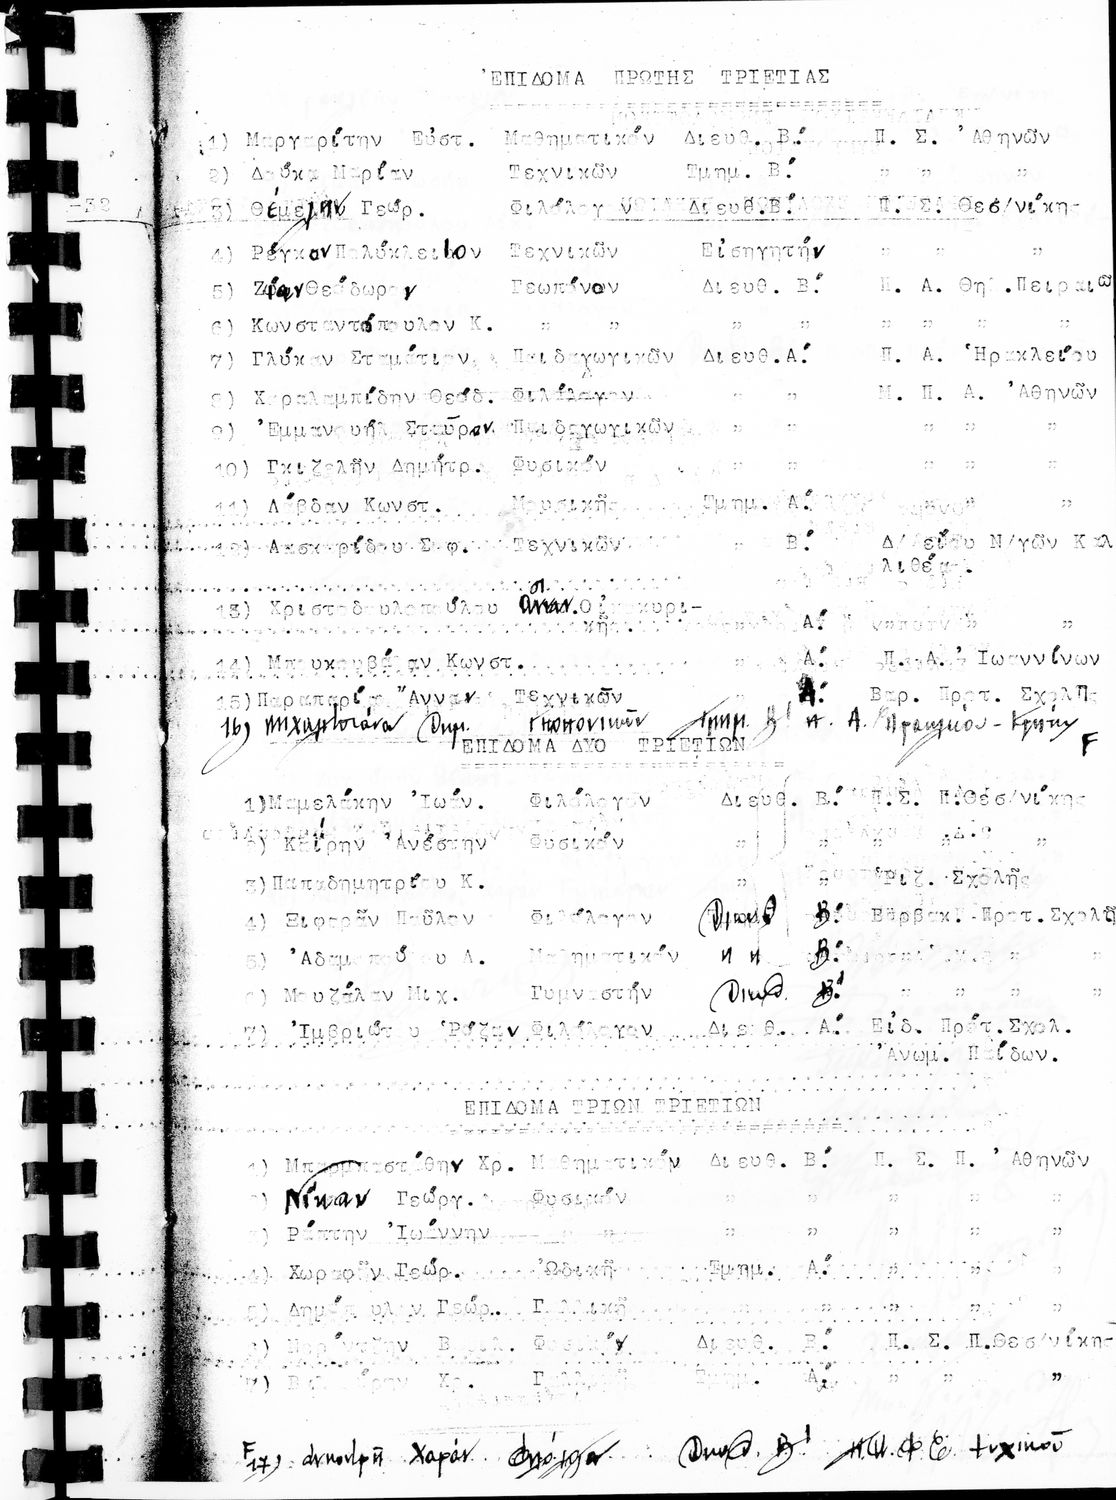 ἘΠΙΔΟΜΑ ΠΡΩΤΗΣ ΤΡΙΕΤΙΑΣ
1) Μαργαρίτην Εὐστ. Μαθηματικόν Διευθ. Β.' Π. Σ. Ἀθηνῶν
2) Δούκα Μαρίαν Τεχνικῶν Τμημ. Β.' " " "
3) Θέμελην Γεώρ. Φιλόλογον Διευθ.Β.' Π. Σ. Θεσ/νίκης
4) Ρέγκαν Πολύκλειτον Τεχνικῶν Εἰσηγητήν " " "
5) Ζῴαν Θεόδωρον Γεωπόνον Διευθ. Β.' Π. Α. Θηλ.Πειραιῶ
6) Κωνσταντόπουλον Κ. " " " " " " " "
7) Γλύκαν Σταμάτιον Παιδαγωγικῶν Διευθ.Α.' Π. Α. Ἡρακλείου
8) Χαραλαμπίδην Θεόδ. Φιλόλογον " " Μ. Π. Α. Ἀθηνῶν
9) Ἐμμανουήλ Σταῦρον Παιδαγωγικῶν " " " " "
10) Γκιζελῆν Δημήτρ. Φυσικόν " " " " "
11) Λάβδαν Κωνστ. Μουσικῆς Τμημ. Α.' " "
12) Λασκαρίδου Σοφ. Τεχνικῶν " Β.' Δ/λείου Ν/γῶν Καλ
λιθέας.
13) Χριστοδουλοπούλου Οἰκοκυρι-
κῆς. Α.' " "
14) Μπουκουβάλαν Κωνστ. " Α.' Π. Α. Ἰωαννίνων
15)Παραπαρίου Ἄνναν Τεχνικῶν " Α.' Βαρ. Προτ. Σχολῆς
16) Δημ. Γεωπονικῶν Τμημ. Β' Π. Α. Ἡρακλείου - Κρήτης
F
ΕΠΙΔΟΜΑ ΔΥΟ ΤΡΙΕΤΙΩΝ
1)Μαμελάκην Ἰωάν. Φιλόλογον Διευθ. Β.' Π.Σ. Π.Θεσ/νίκης
2) Καΐρην Ἀνέστην Φυσικόν " " " " "
3)Παπαδημητρίου Κ. " " Ριζ. Σχολῆς
4) Ξιφαρᾶν Παῦλον Φιλόλογον Διευθ Β.' Βαρβακ. Προτ.Σχολῆ
5) Ἀδαμοπούλου Α. Μαθηματικόν " " Β.' " "
6) Μουζάλαν Μιχ. Γυμναστήν Διευθ. Β.' " " " "
7) Ἰμβριώτου Ρόζαν Φιλόλογον Διευθ. Α.' Εἰδ. Πρότ.Σχολ.
Ἀνωμ. Παίδων.
ΕΠΙΔΟΜΑ ΤΡΙΩΝ ΤΡΙΕΤΙΩΝ
1) Μπαρμπαστάθην Χρ. Μαθηματικόν Διευθ. Β.' Π. Σ. Π. Ἀθηνῶν
2) Νίκαν Γεώργ. Φυσικόν " " " " "
3) Ράπτην Ἰωάννην " " " " " " "
4) Χωραφᾶν Γεώρ. Ὠδικῆς Τμημ. Α.' " " "
5) Δημόπουλον Γεώρ. Γαλλικῆς " " " " "
Φυσικόν Διευθ. Β.' Π. Σ. Π.Θεσ/νίκης
Χρ. Τμημ. Α.' " " "
F
17) Χαράν Διευθ. Β' Ψυχικοῦ